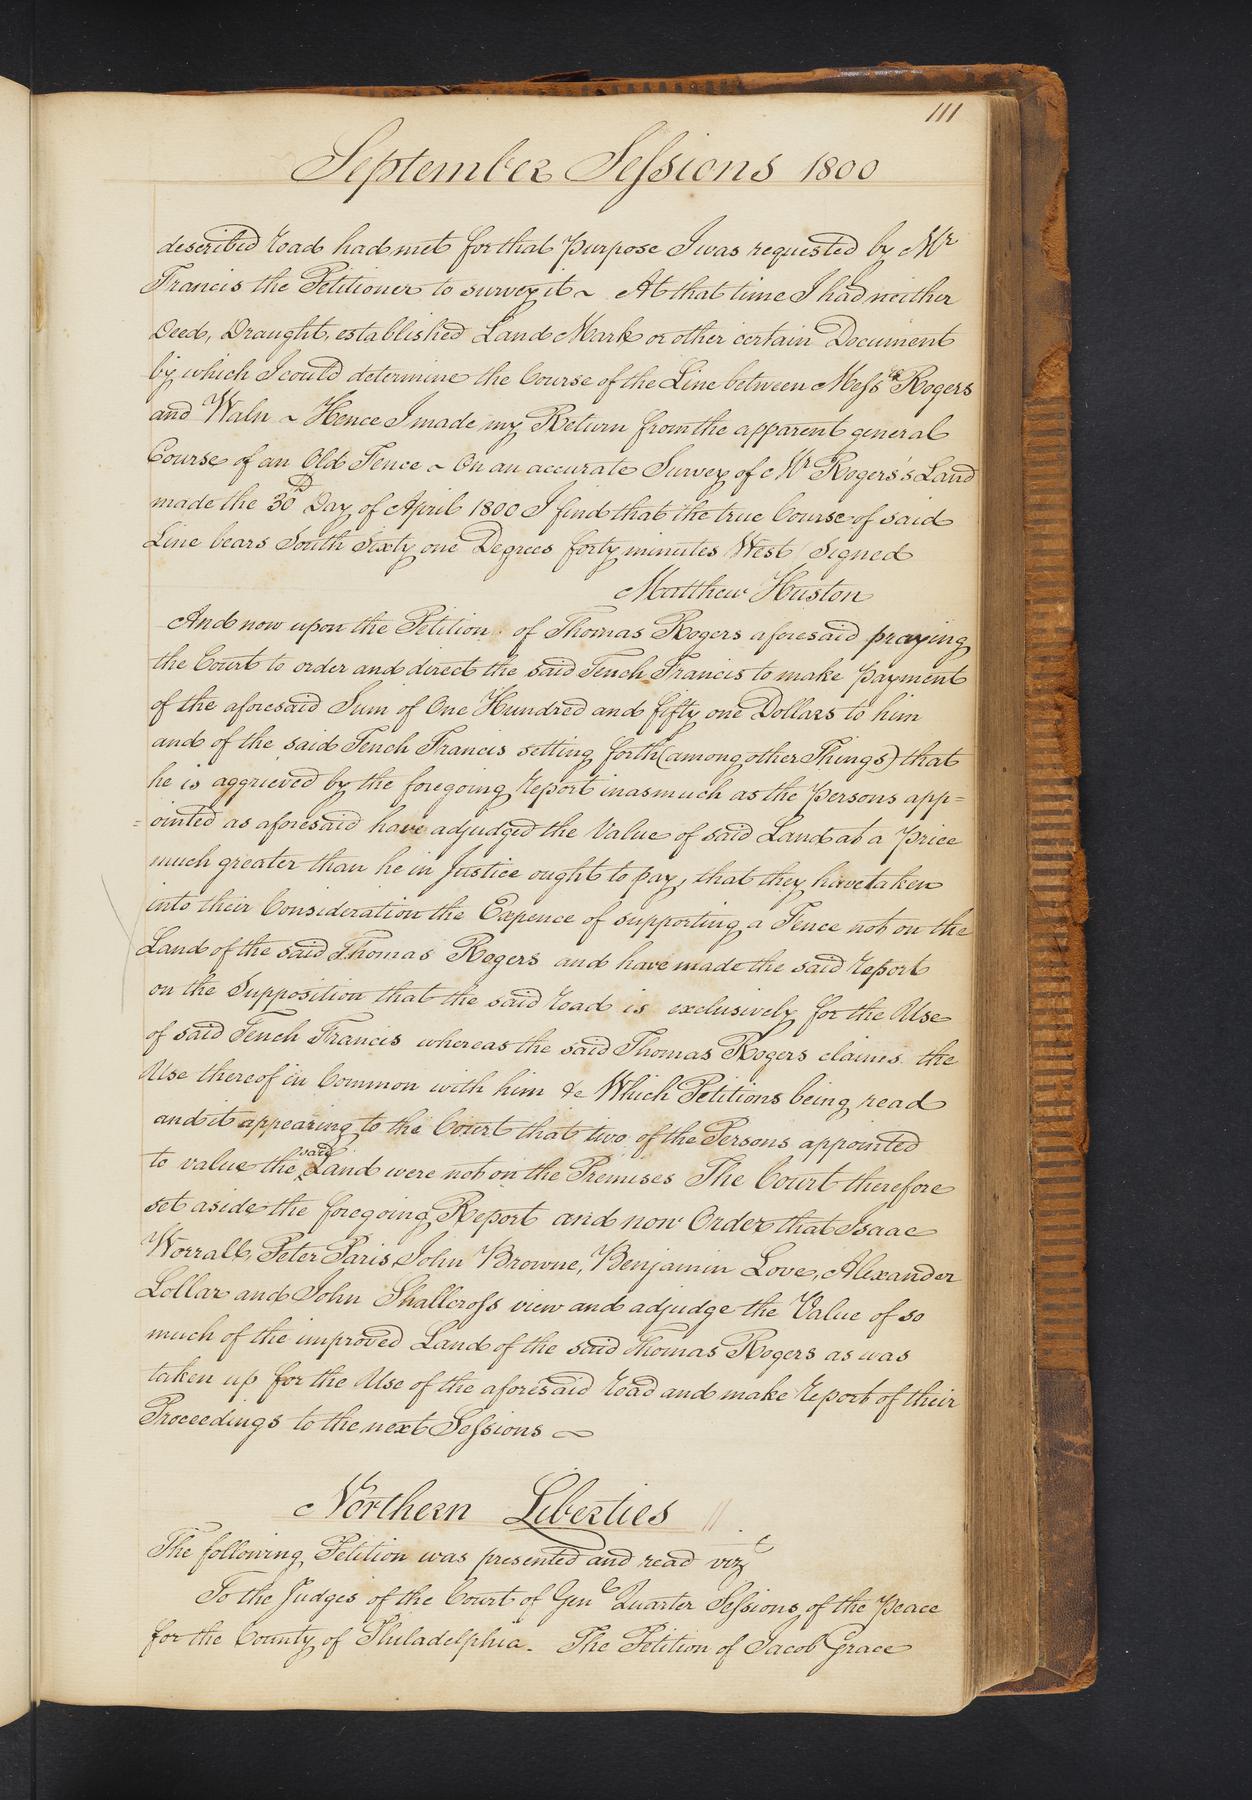 111
September Sessions 1800
described road had met for that Purpose I was requested by Mr
Francis the Petitioner to survey it ~ At that time I had neither
Deed, Draught, established Land Mark or other certain Document
by which I could determine the Course of the Line between Messrs Rogers
and Waln ~ Hence I made my Return from the apparent general
Course of an Old Fence ~ On an accurate Survey of Mr Rogers's Land
made the 30th Day of April 1800 I find that the true Course of said
Line bears South Sixty one Degrees forty minutes West / Signed
Matthew Huston
And now upon the Petition of Thomas Rogers aforesaid praying
the Court to order and direct the said Tench Francis to make Payment
of the aforesaid Sum of One Hundred and fifty one Dollars to him
and of the said Tench Francis setting forth (among other Things) that
he is aggrieved by the foregoing report inasmuch as the Persons app=
=ointed as aforesaid have adjudged the Value of said Land at a Price
much greater than he in Justice ought to pay, that they have taken
into their Consideration the Expence of supporting a Fence not on the
Land of the said Thomas Rogers and have made the said report
on the Supposition that the said road is exclusively for the Use
of said Tench Francis whereas the said Thomas Rogers claims the
Use thereof in Common with him &c Which Petitions being read
and it appearing to the Court that two of the Persons appointed
to value the said Land were not on the Premises The Court therefore
set aside the foregoing Report and now Order that Isaac
Worrall, Peter Paris, John Browne, Benjamin Love, Alexander
Lollar and John Shallcross view and adjudge the Value of so
much of the improved Land of the said Thomas Rogers as was
taken up for the Use of the aforesaid road and make report of their
Proceedings to the next Sessions ~
Northern Liberties
The following Petition was presented and read vizt
To the Judges of the Court of Genl Quarter Sessions of the Peace
for the County of Philadelphia. The Petition of Jacob Grace